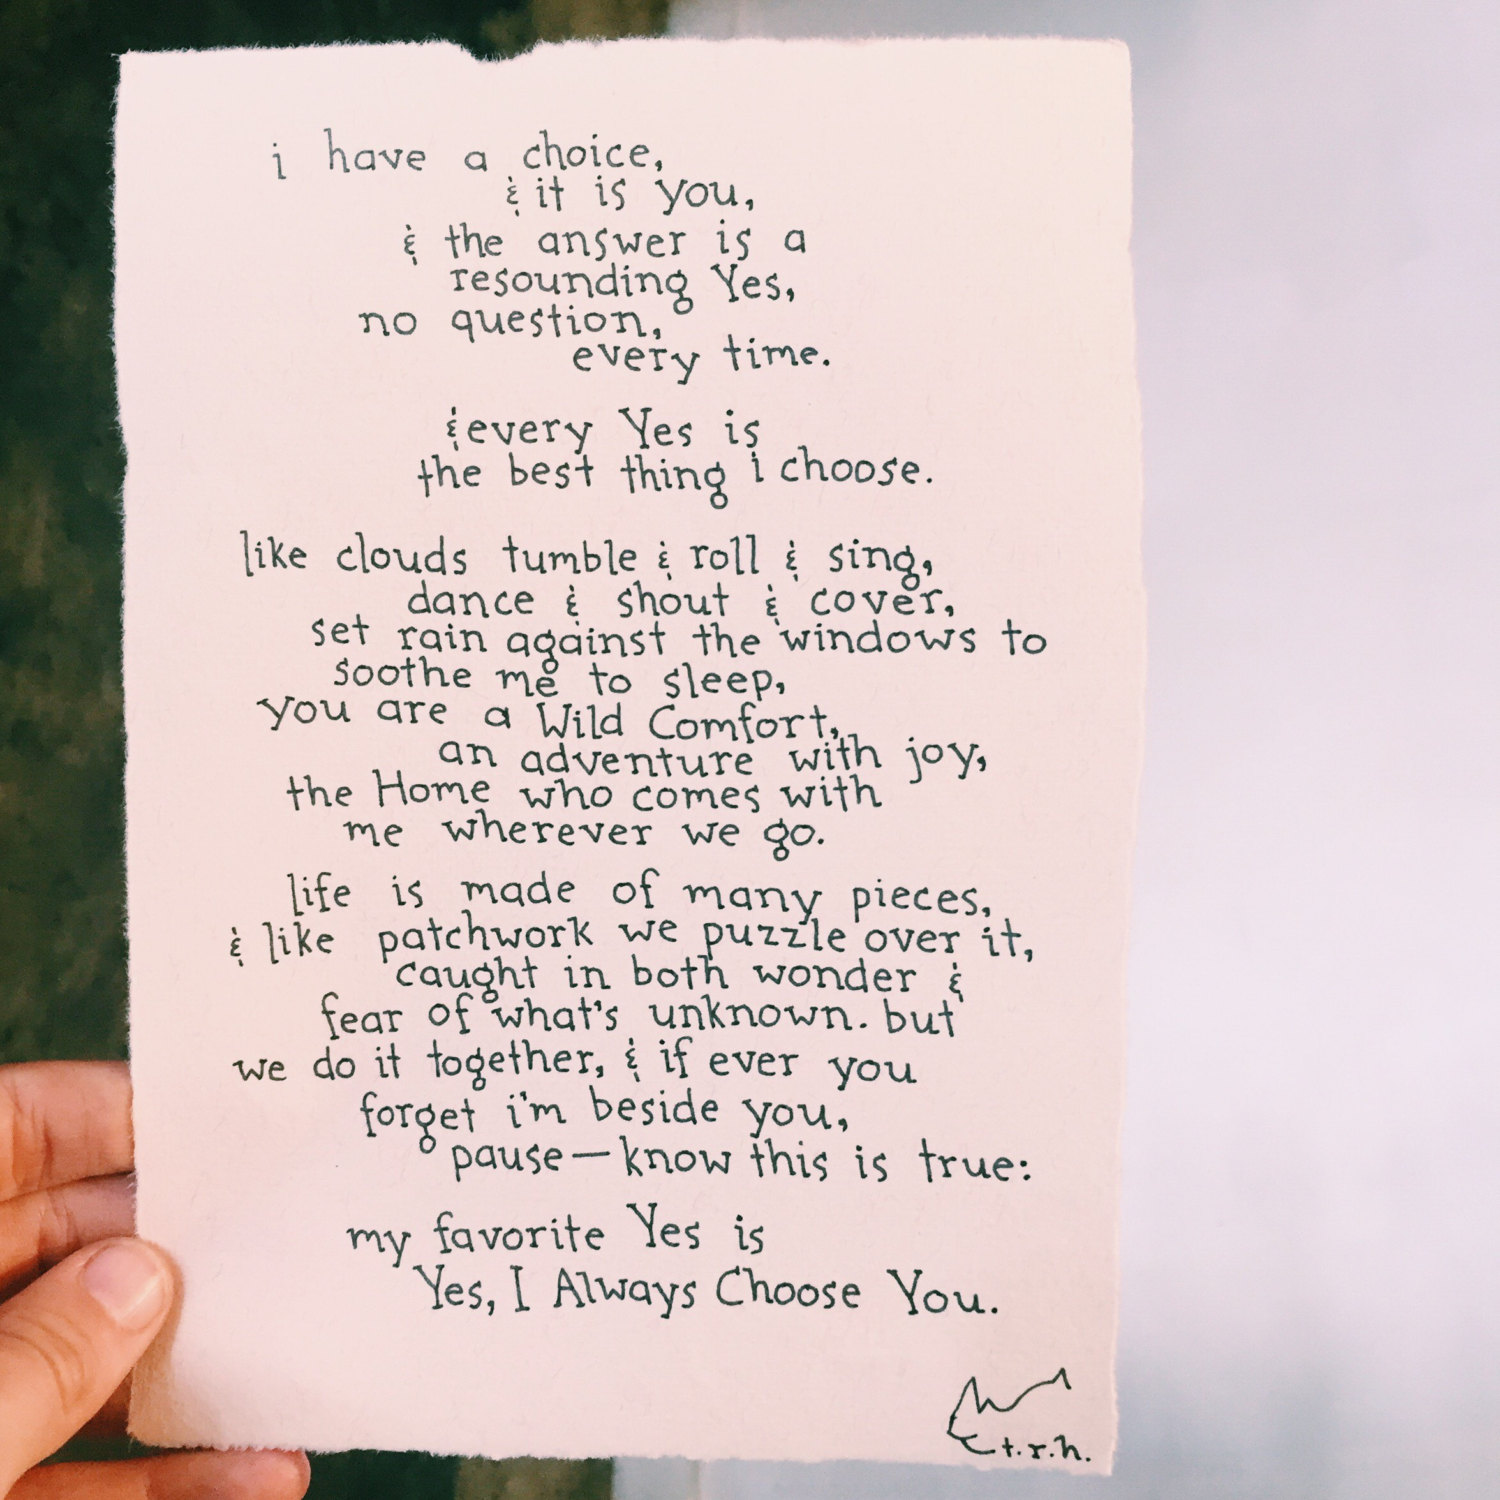 i have a choice,
& it is you,
& the answer is a
resounding Yes,
no question,
every time.
& every Yes is
the best thing i choose.
like clouds tumble & roll & sing,
dance & shout & cover,
set rain against the windows to
soothe me to sleep,
you are a Wild Comfort,
an adventure with joy,
the Home who comes with
me wherever we go.
life is made of many pieces,
& like patchwork we puzzle over it,
caught in both wonder &
fear of what's unknown. but
we do it together, & if ever you
forget i'm beside you,
pause—know this is true:
my favorite Yes is
Yes, I Always Choose You.
t.r.h.